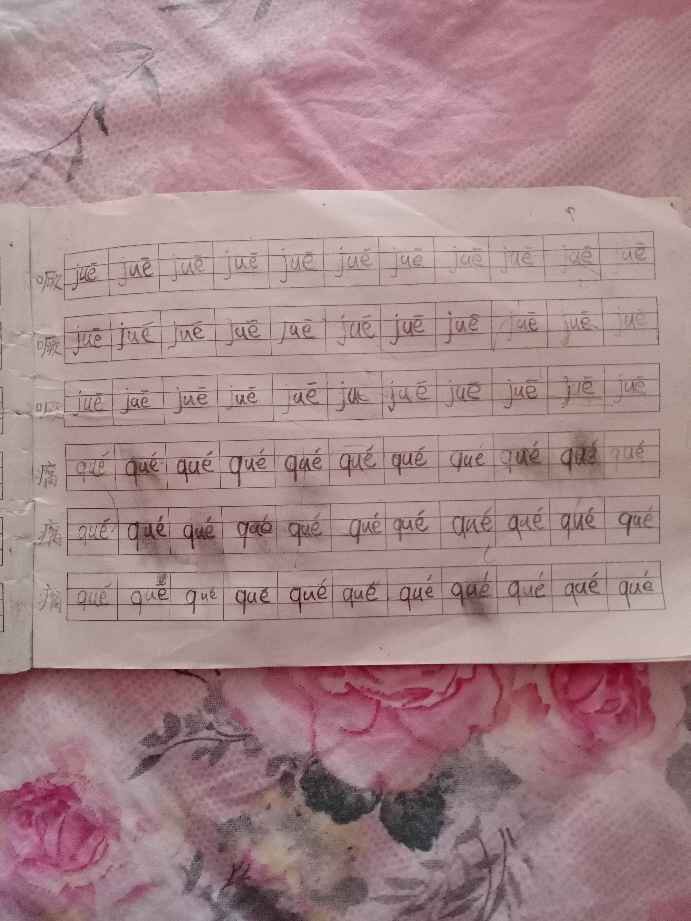 噘 juē juē juē juē juē juē juē juē juē juē juē
噘 juē juē juē juē juē juē juē juē juē juē juē
噘 juē juē juē juē juē juē juē juē juē juē
qué qué qué qué qué qué qué qué qué qué qué
qué qué qué qué qué qué qué qué qué qué qué
qué qué qué qué qué qué qué qué qué qué qué